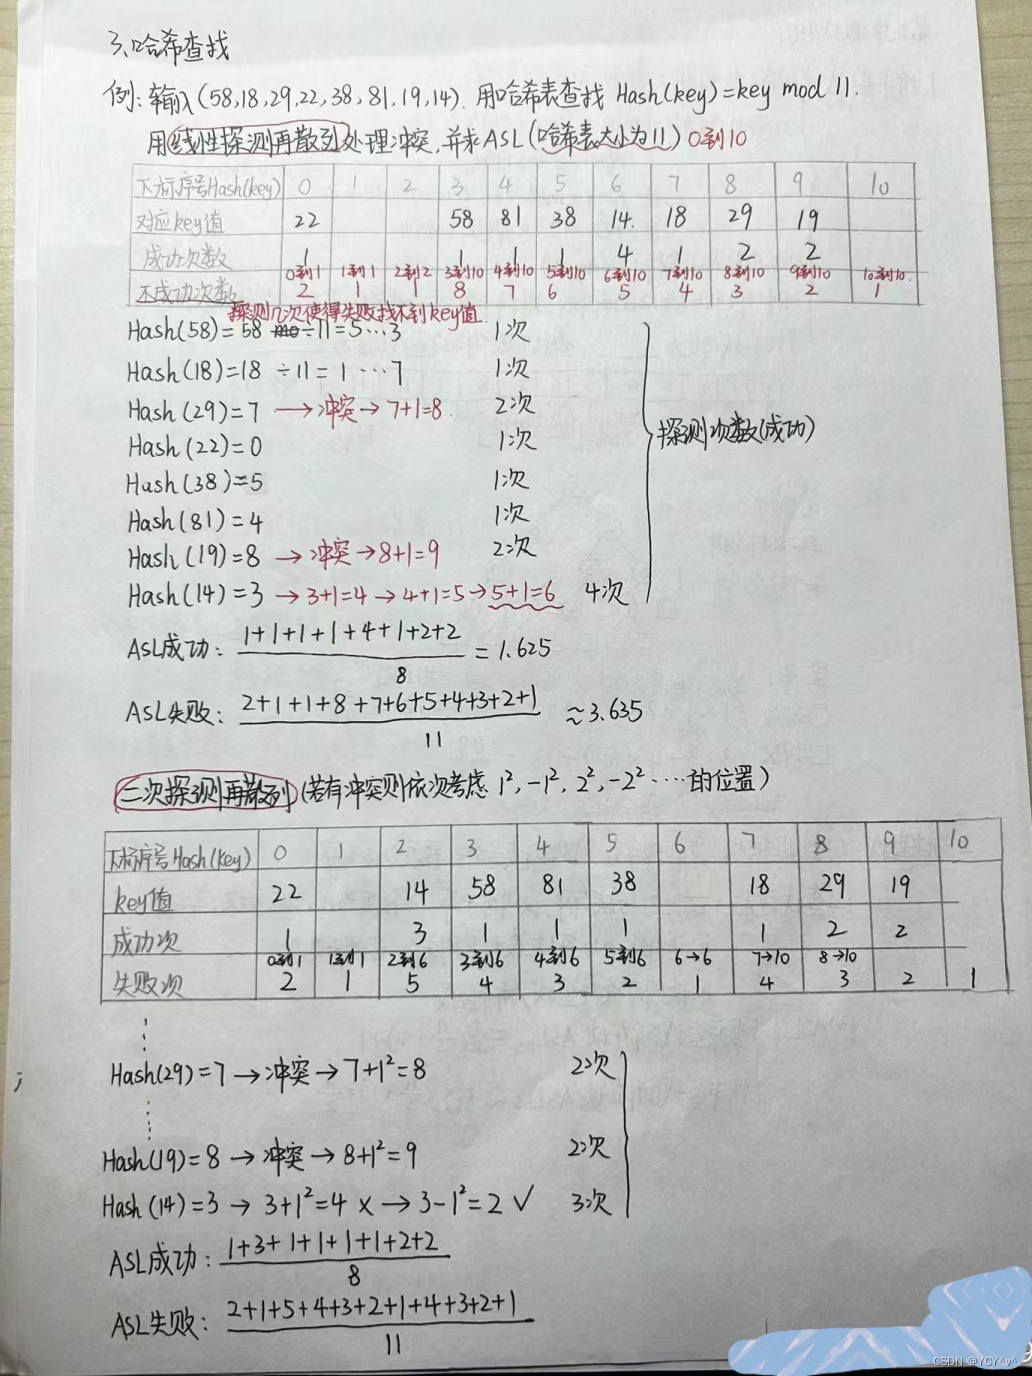 3、哈希查找
例:输入(58,18,29,22,38,81,19,14). 用哈希表查找 Hash(key)=key mod 11.
用线性探测再散列处理冲突,并求ASL(哈希表大小为11) 0到10
下标序号Hash(key) 0 1 2 3 4 5 6 7 8 9 10
对应key值 22 58 81 38 14. 18 29 19
成功次数 1 1 1 1 4 1 2 2
0到1 1到1 2到2 3到10 4到10 5到10 6到10 7到10 8到10 9到10 10到10.
不成功次数 2 1 1 8 7 6 5 4 3 2 1
探测几次使得失败找不到key值.
Hash(58)=58 ÷11=5…3 1次
Hash(18)=18 ÷11=1 …7 1次
Hash(29)=7 →冲突→7+1=8. 2次
Hash(22)=0 1次
Hash(38)=5 1次
Hash(81)=4 1次
Hash(19)=8 →冲突→8+1=9 2次
Hash(14)=3 →3+1=4→4+1=5→5+1=6 4次
探测次数(成功)
ASL成功: 1+1+1+1+4+1+2+2 / 8 =1.625
ASL失败: 2+1+1+8+7+6+5+4+3+2+1 / 11 ≈3.635
二次探测再散列(若有冲突则依次考虑 1²,-1²,2²,-2²……的位置)
下标序号Hash(key) 0 1 2 3 4 5 6 7 8 9 10
key值 22 14 58 81 38 18 29 19
成功次 1 3 1 1 1 1 2 2
0到1 1到1 2到6 3到6 4到6 5到6 6→6 7→10 8→10
失败次 2 1 5 4 3 2 1 4 3 2 1
Hash(29)=7→冲突→7+1²=8 2次
Hash(19)=8→冲突→8+1²=9 2次
Hash(14)=3→3+1²=4 ×→3-1²=2 √ 3次
ASL成功: 1+3+1+1+1+1+2+2 / 8
ASL失败: 2+1+5+4+3+2+1+4+3+2+1 / 11